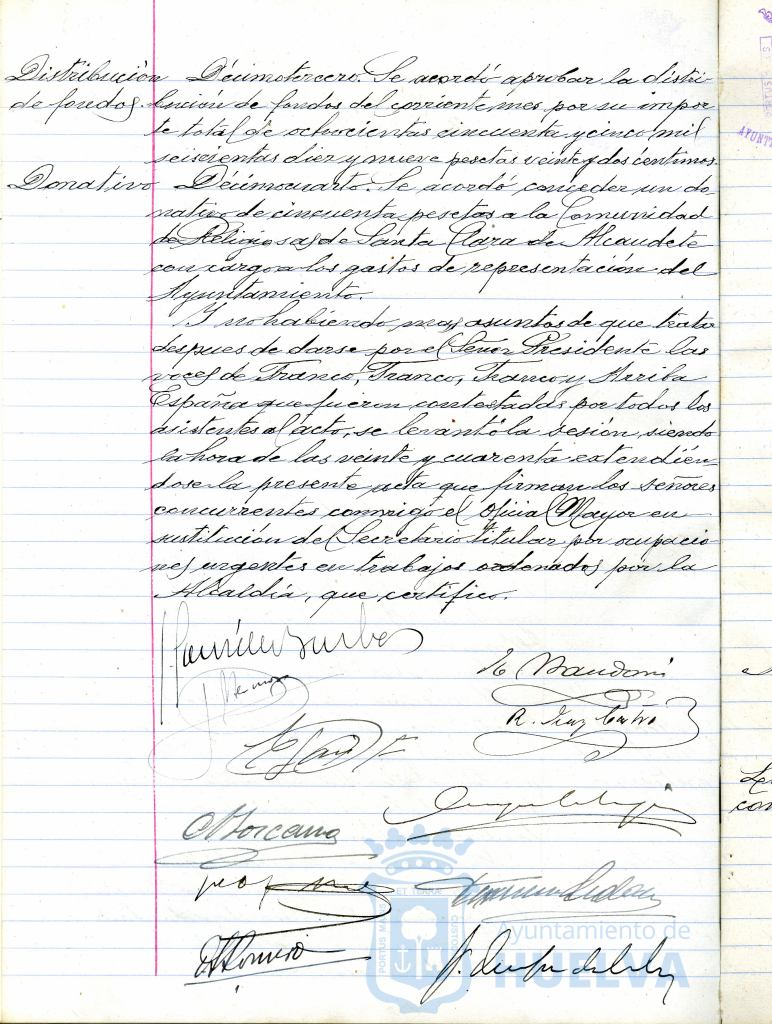 Distribución
de fondos.
Décimotercero. Se acordó aprobar la distri-
bución de fondos del corriente mes por su impor
te total de ochocientas cincuenta y cinco mil
seiscientas diez y nueve pesetas veinte y dos centimos.
Donativo
Décimocuarto. Se acordó conceder un do-
nativo de cincuenta pesetas a la Comunidad
de Religiosas de Santa Clara de Alcaudete
con cargo a los gastos de representación del
Ayuntamiento.
Y no habiendo mas asuntos de que tratar
despues de darse por el Señor Presidente las
voces de Franco, Franco, Franco y Arriba
España que fueron contestadas por todos los
asistentes al acto, se levantó la sesión, siendo
la hora de las veinte y cuarenta extendién-
dose la presente acta que firman los señores
concurrentes conmigo el Oficial Mayor en
sustitución del Secretario titular por ocupacio
nes urgentes en trabajos ordenados por la
Alcaldía, que certifico.
PORTUS MARIS ET TERRAE CUSTODIA
Ayuntamiento de
HUELVA